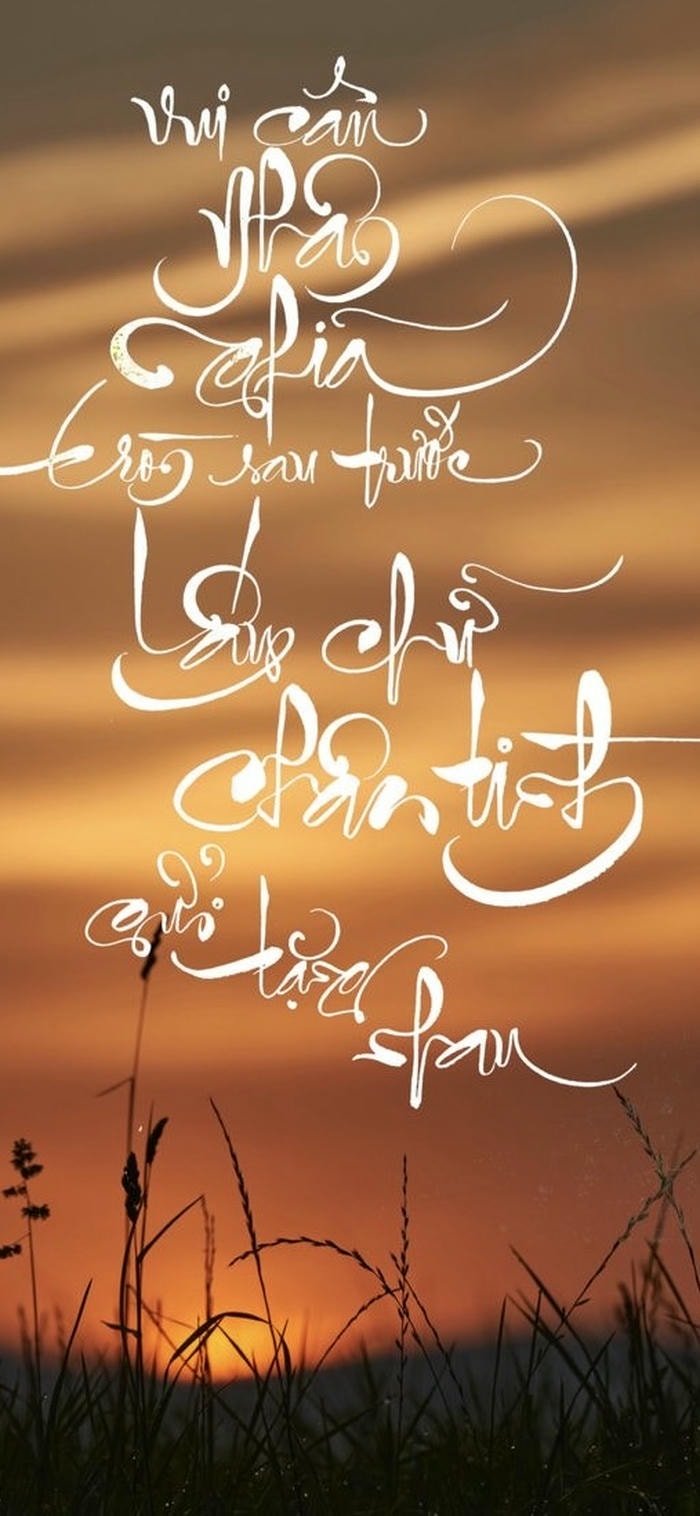 Vui cần
Nhân
Nghĩa
trong sau trước
Lấy chữ
chân tình
gửi tặng
nhau